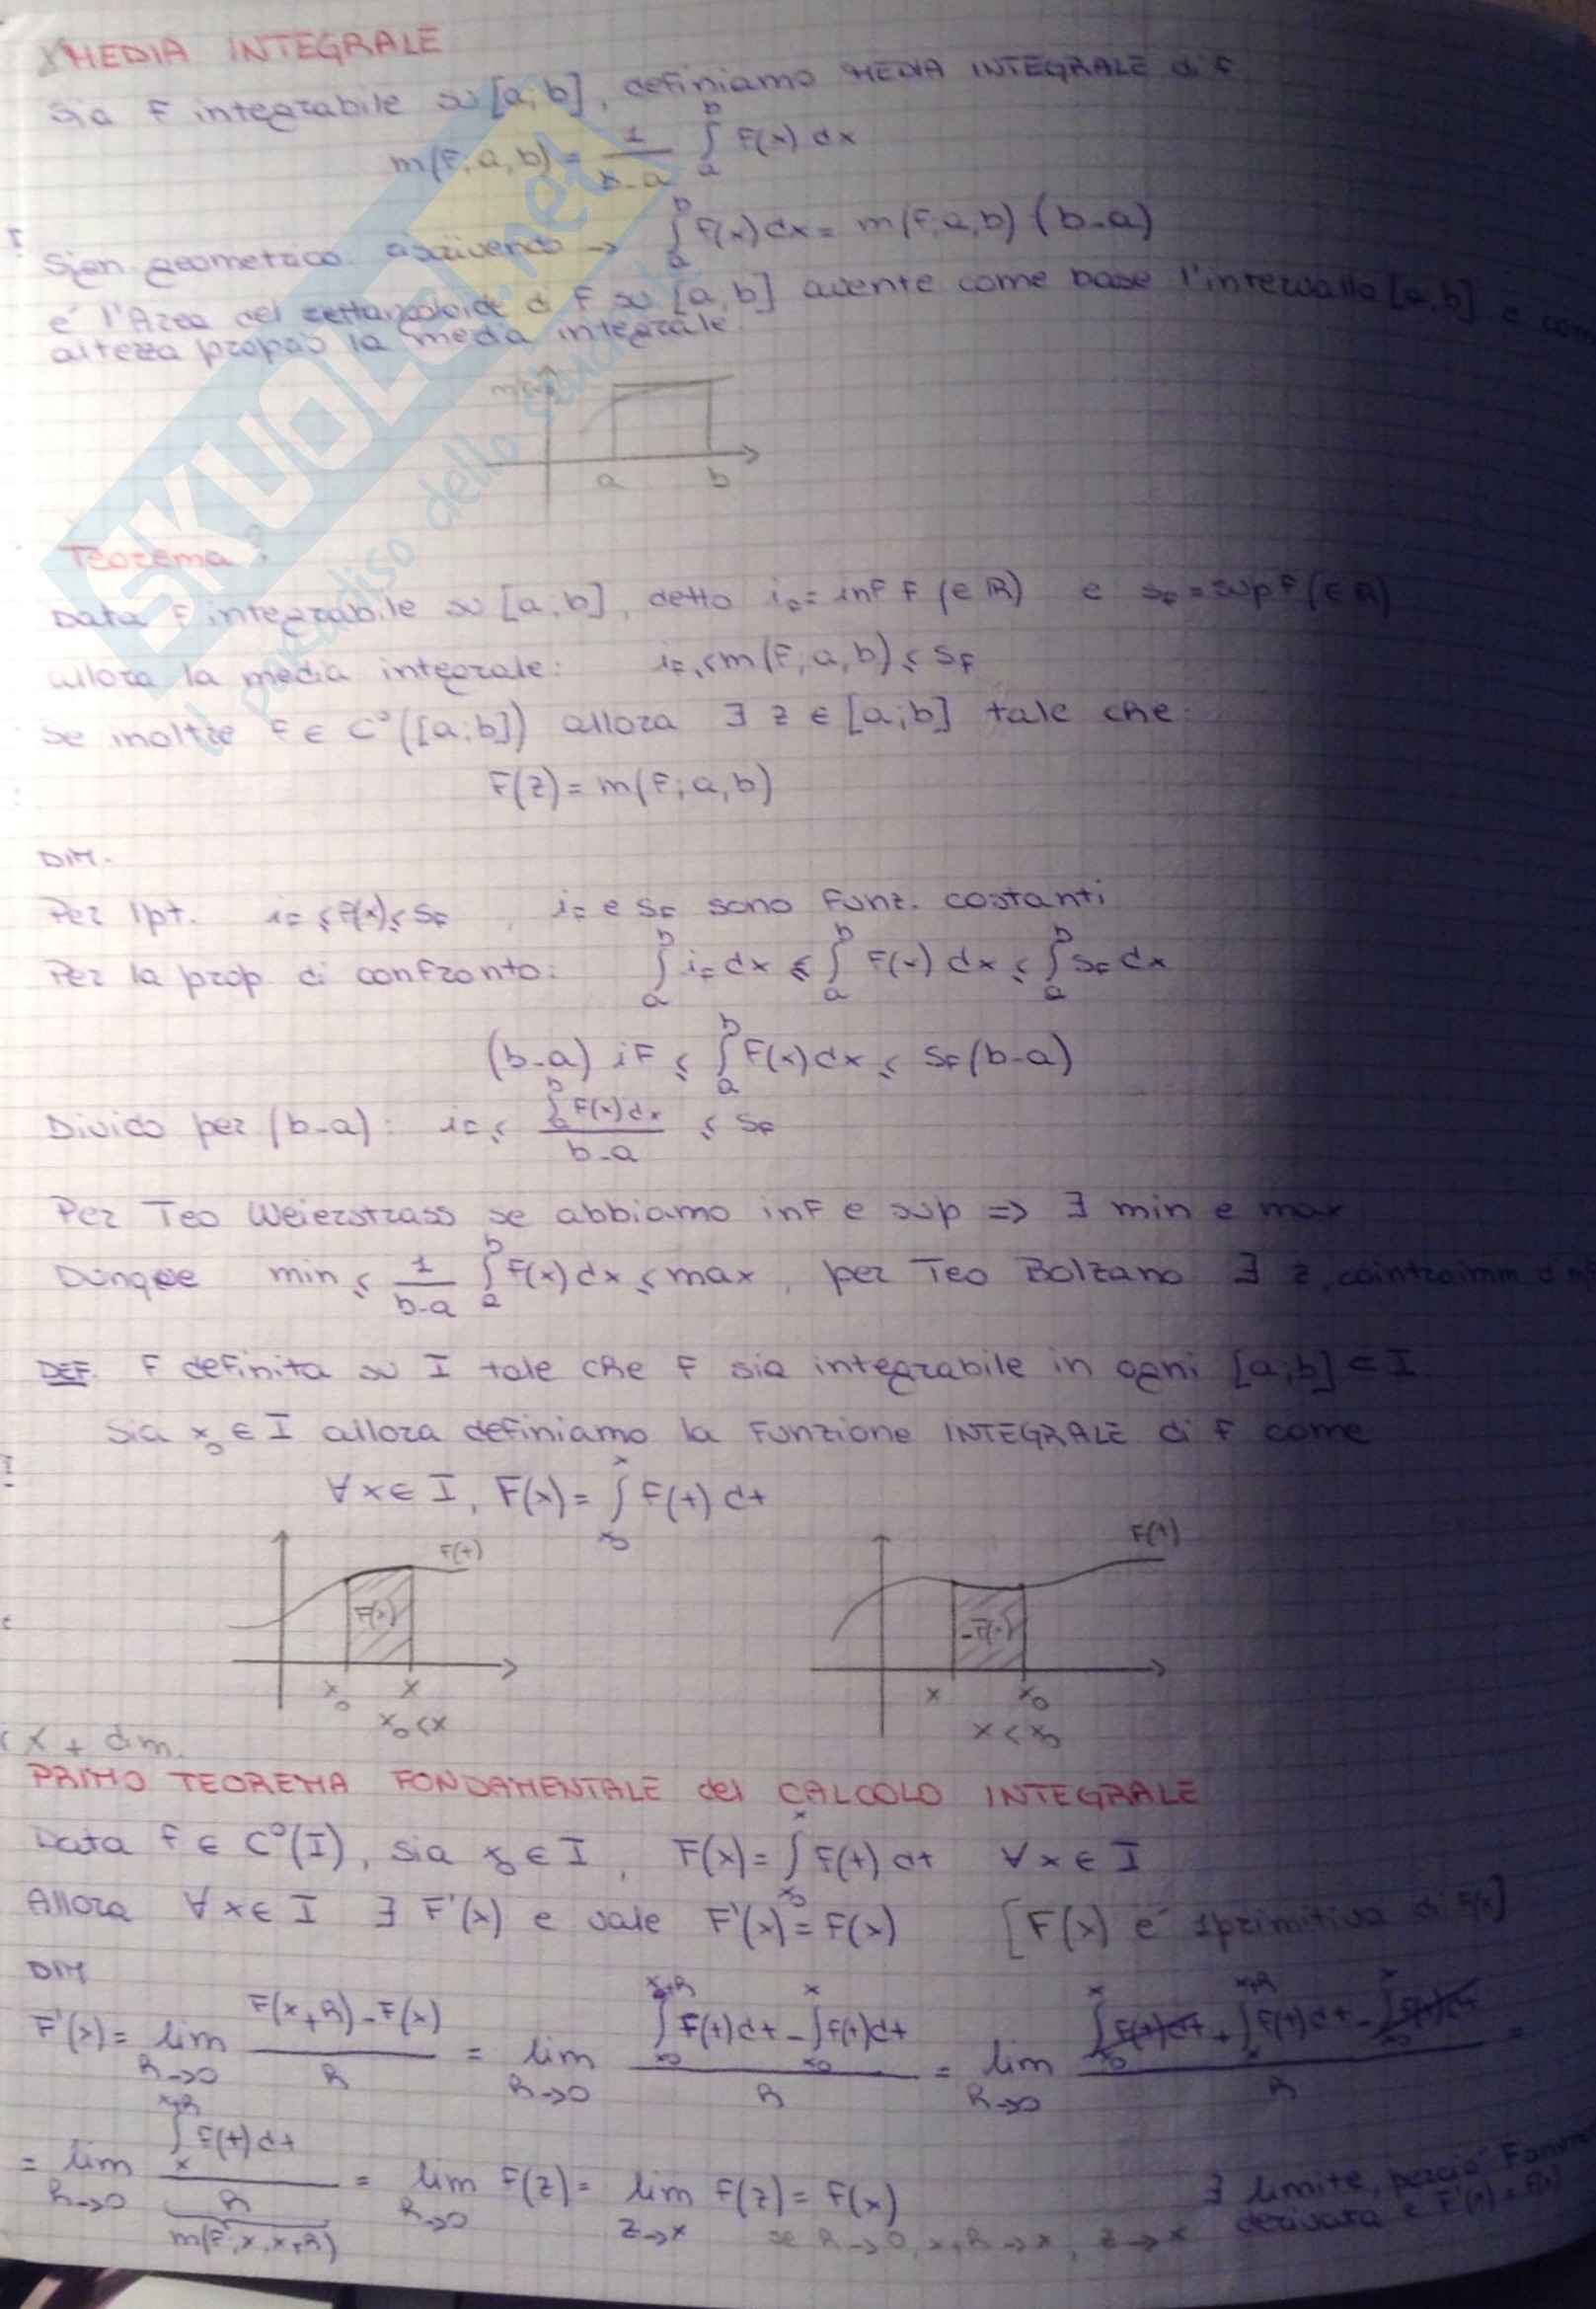 MEDIA INTEGRALE
Sia f integrabile su [a;b], definiamo MEDIA INTEGRALE di f
m(f;a,b) = 1/(b-a) ∫_a^b f(x) dx
geometrico: riscrivendo → ∫_a^b f(x)dx = m(f;a,b) (b-a)
é l'Area del rettangoloide di f su [a,b] avente come base l'intervallo [a,b] e com
altezza proprio la media integrale
a b
Teorema:
Data f integrabile su [a,b], detto i_f = inf f (∈ R) e s_f = sup f (∈ R)
allora la media integrale: i_f ≤ m(f;a,b) ≤ s_f
Se inoltre f ∈ C°([a;b]) allora ∃ z ∈ [a;b] tale che:
f(z) = m(f;a,b)
DIM.
Per ipt. i_f ≤ f(x) ≤ s_f , i_f e s_f sono funz. costanti
Per la prop. di confronto: ∫_a^b i_f dx ≤ ∫_a^b f(x) dx ≤ ∫_a^b s_f dx
(b-a) i_f ≤ ∫_a^b f(x)dx ≤ s_f (b-a)
Divido per (b-a): i_f ≤ (∫_a^b f(x)dx)/(b-a) ≤ s_f
Per Teo Weierstrass se abbiamo inf e sup => ∃ min e max
Dunque min ≤ 1/(b-a) ∫_a^b f(x)dx ≤ max, per Teo Bolzano ∃ z
DEF. f definita su I tale che f sia integrabile in ogni [a,b] ⊂ I
Sia x_0 ∈ I allora definiamo la funzione INTEGRALE di f come
∀x ∈ I, F(x) = ∫_{x_0}^x f(t) dt
f(t) f(t)
F(x) -F(x)
x_0 x x x_0
x_0<x x<x_0
x + dim.
PRIMO TEOREMA FONDAMENTALE del CALCOLO INTEGRALE
Data f ∈ C°(I), sia x_0 ∈ I, F(x) = ∫_{x_0}^x f(t) dt ∀x ∈ I
Allora ∀x ∈ I ∃ F'(x) e vale F'(x) = f(x) [F(x) é 1 primitiva di f(x)]
DIM
F'(x) = lim_{h→0} (F(x+h)-F(x))/h = lim_{h→0} (∫_{x_0}^{x+h} f(t)dt - ∫_{x_0}^x f(t)dt)/h = lim_{h→0} (∫_{x_0}^x f(t)dt + ∫_x^{x+h} f(t)dt - ∫_{x_0}^x f(t)dt)/h =
= lim_{h→0} (∫_x^{x+h} f(t)dt)/h = lim_{h→0} f(z) = lim_{z→x} f(z) = f(x) ∃ limite, perciò
m(f;x,x+h) se h→0, x+h→x, z→x derivata e F'(x) = f(x)
SKUOLA.net
il paradiso dello studente